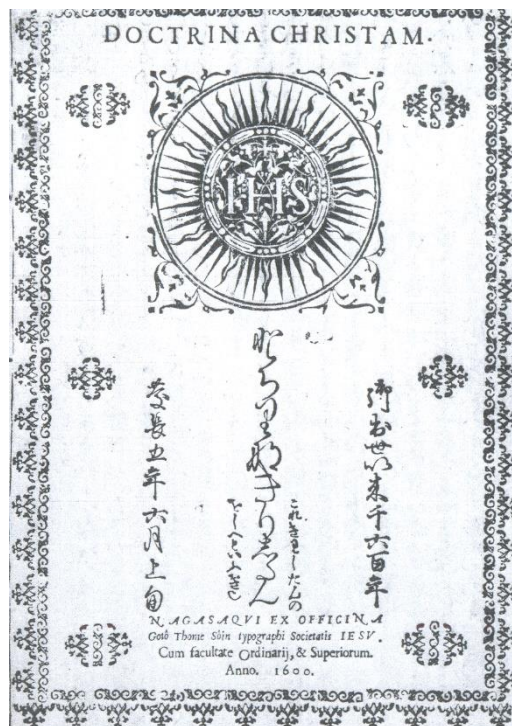 DOCTRINA CHRISTAM.
IHS
御出世以来千六百年
どちりなきりしたん
きりしたんの
をしへといふ
慶長五年六月上旬
NAGASAQVI EX OFFICINA
Gotô Thome Sôin typographi Societatis IESV.
Cum facultate Ordinarij, & Superiorum.
Anno. 1600.